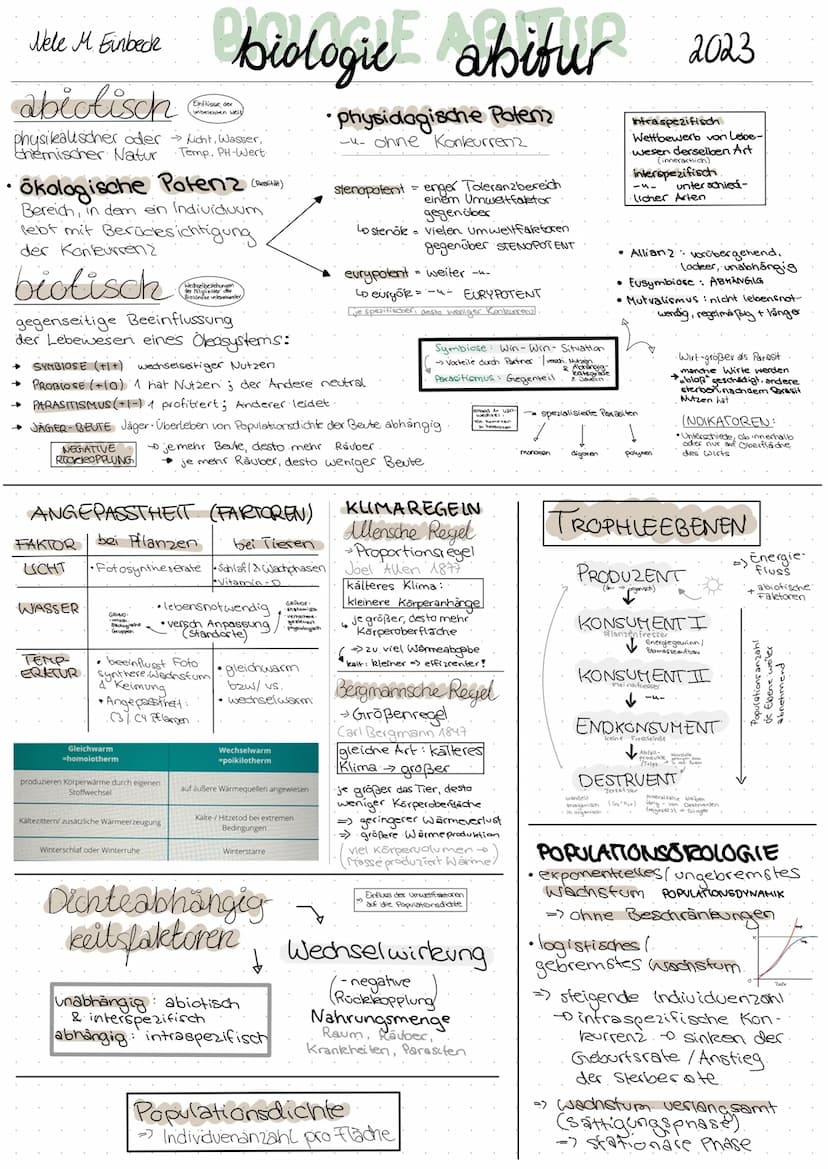 BIOLOGIE ABITUR
Nele M. Einbeck
biologie abitur
2023
abiotisch
Einflüsse der
unbelebten Welt
physikalischer oder → Licht, Wasser,
chemischer Natur Temp. PH-Wert
• ökologische Potenz (Realität)
Bereich, in dem ein Individuum
lebt mit Berücksichtigung
der Konkurrenz
• physiologische Potenz
-"- ohne Konkurrenz
stenopotent = enger Toleranzbereich
einem Umweltfaktor
gegenüber
↳ stenök = vielen Umweltfaktoren
gegenüber STENOPOTENT
eurypotent = weiter -"-
↳ euryök = -"- EURYPOTENT
je spezifischer, desto weniger Konkurrenz
intraspezifisch
Wettbewerb von Lebe-
wesen derselben Art
(innerartlich)
interspezifisch
-"- unterschied-
licher Arten
• Allianz : vorübergehend,
locker, unabhängig
• Eusymbiose : ABHÄNGIG
• Mutualismus : nicht lebensnot-
wendig, regelmäßig + länger
biotisch
Wechselbeziehungen
der Mitglieder der
Biozönose untereinander
gegenseitige Beeinflussung
der Lebewesen eines Ökosystems:
→ SYMBIOSE (+|+) wechselseitiger Nutzen
→ PROBIOSE (+|0) 1 hat Nutzen ; der Andere neutral
→ PARASITISMUS (+|-) 1 profitiert ; Anderer leidet
→ JÄGER-BEUTE Jäger: Überleben von Populationsdichte der Beute abhängig
NEGATIVE
RÜCKKOPPLUNG
→ je mehr Beute, desto mehr Räuber
→ je mehr Räuber, desto weniger Beute
Symbiose : Win-Win-Situation
→ Vorteile durch Partner / versch. Nutzen
& Abhängig-
keitsgrade
& Dauern
Parasitismus : Gegenteil
→ spezialisierte Parasiten
monoxen digoxen polyxen
Wirt größer als Parasit
→ manche Wirte werden
"bloß" geschädigt, andere
sterben nachdem Parasit
Nutzen hat
INDIKATOREN:
• Unterschiede, ob innerhalb
oder nur auf Oberfläche
des Wirts
ANGEPASSTHEIT (FAKTOREN)
FAKTOR bei Pflanzen bei Tieren
LICHT • Fotosyntheserate • Schlaf & Wachphasen
• Vitamin-D
WASSER • lebensnotwendig
• versch. Anpassung
(Standorte)
TEMP-
ERATUR
• beeinflusst Foto
synthese, Wachstum
& Keimung
• Angepasstheit:
C3/C4 Pflanzen
• gleichwarm
bzw./ vs.
• wechselwarm
Gleichwarm
=homoiotherm
Wechselwarm
=poikilotherm
produzieren Körperwärme durch eigenen
Stoffwechsel
auf äußere Wärmequellen angewiesen
Kältezittern/ zusätzliche Wärmeerzeugung
Kälte / Hitzetod bei extremen
Bedingungen
Winterschlaf oder Winterruhe
Winterstarre
KLIMAREGELN
Allensche Regel
→ Proportionsregel
Joel Allen 1877
kälteres Klima :
kleinere Körperanhänge
↳ je größer, desto mehr
Körperoberfläche
→ zu viel Wärmeabgabe
kalt : kleiner → effizienter!
Bergmannsche Regel
→ Größenregel
Carl Bergmann 1847
gleiche Art : kälteres
Klima → größer
je größer das Tier, desto
weniger Körperoberfläche
=> geringerer Wärmeverlust
=> größere Wärmeproduktion
(viel Körpervolumen →
Masse produziert Wärme)
TROPHIEEBENEN
PRODUZENT
KONSUMENT I
Pflanzenfresser
Energiegewinn /
Biomasseaufbau
KONSUMENT II
-"-
ENDKONSUMENT
keine Fressfeinde
DESTRUENT
Zersetzer
=> Energie-
fluss
+ abiotische
Faktoren
Populationsanzahl
je Ebene weiter
abnehmend
Dichteabhängig-
keitsfaktoren
unabhängig : abiotisch
& interspezifisch
abhängig : intraspezifisch
→ Einfluss der Umweltfaktoren
auf die Populationsdichte
Wechselwirkung
(- negative
Rückkopplung)
Nahrungsmenge
Raum, Räuber,
Krankheiten, Parasiten
Populationsdichte
=> Individuenanzahl pro Fläche
POPULATIONSÖKOLOGIE
• exponentielles / ungebremstes
Wachstum POPULATIONSDYNAMIK
=> ohne Beschränkungen
• logistisches /
gebremstes Wachstum
Zeit
=> steigende Individuenzahl
→ intraspezifische Kon-
kurrenz → sinken der
Geburtsrate / Anstieg
der Sterberate
=> Wachstum verlangsamt
(Sättigungsphase)
=> stationäre Phase